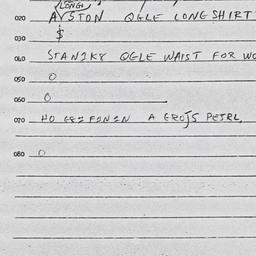 LONG
020 AVSTON QGLE LONG SHIRT
030 $
060 STANIKY QGLE WAIST FOR WO
050 O
060 O
070 HO A GROJS PETRL,
080 O